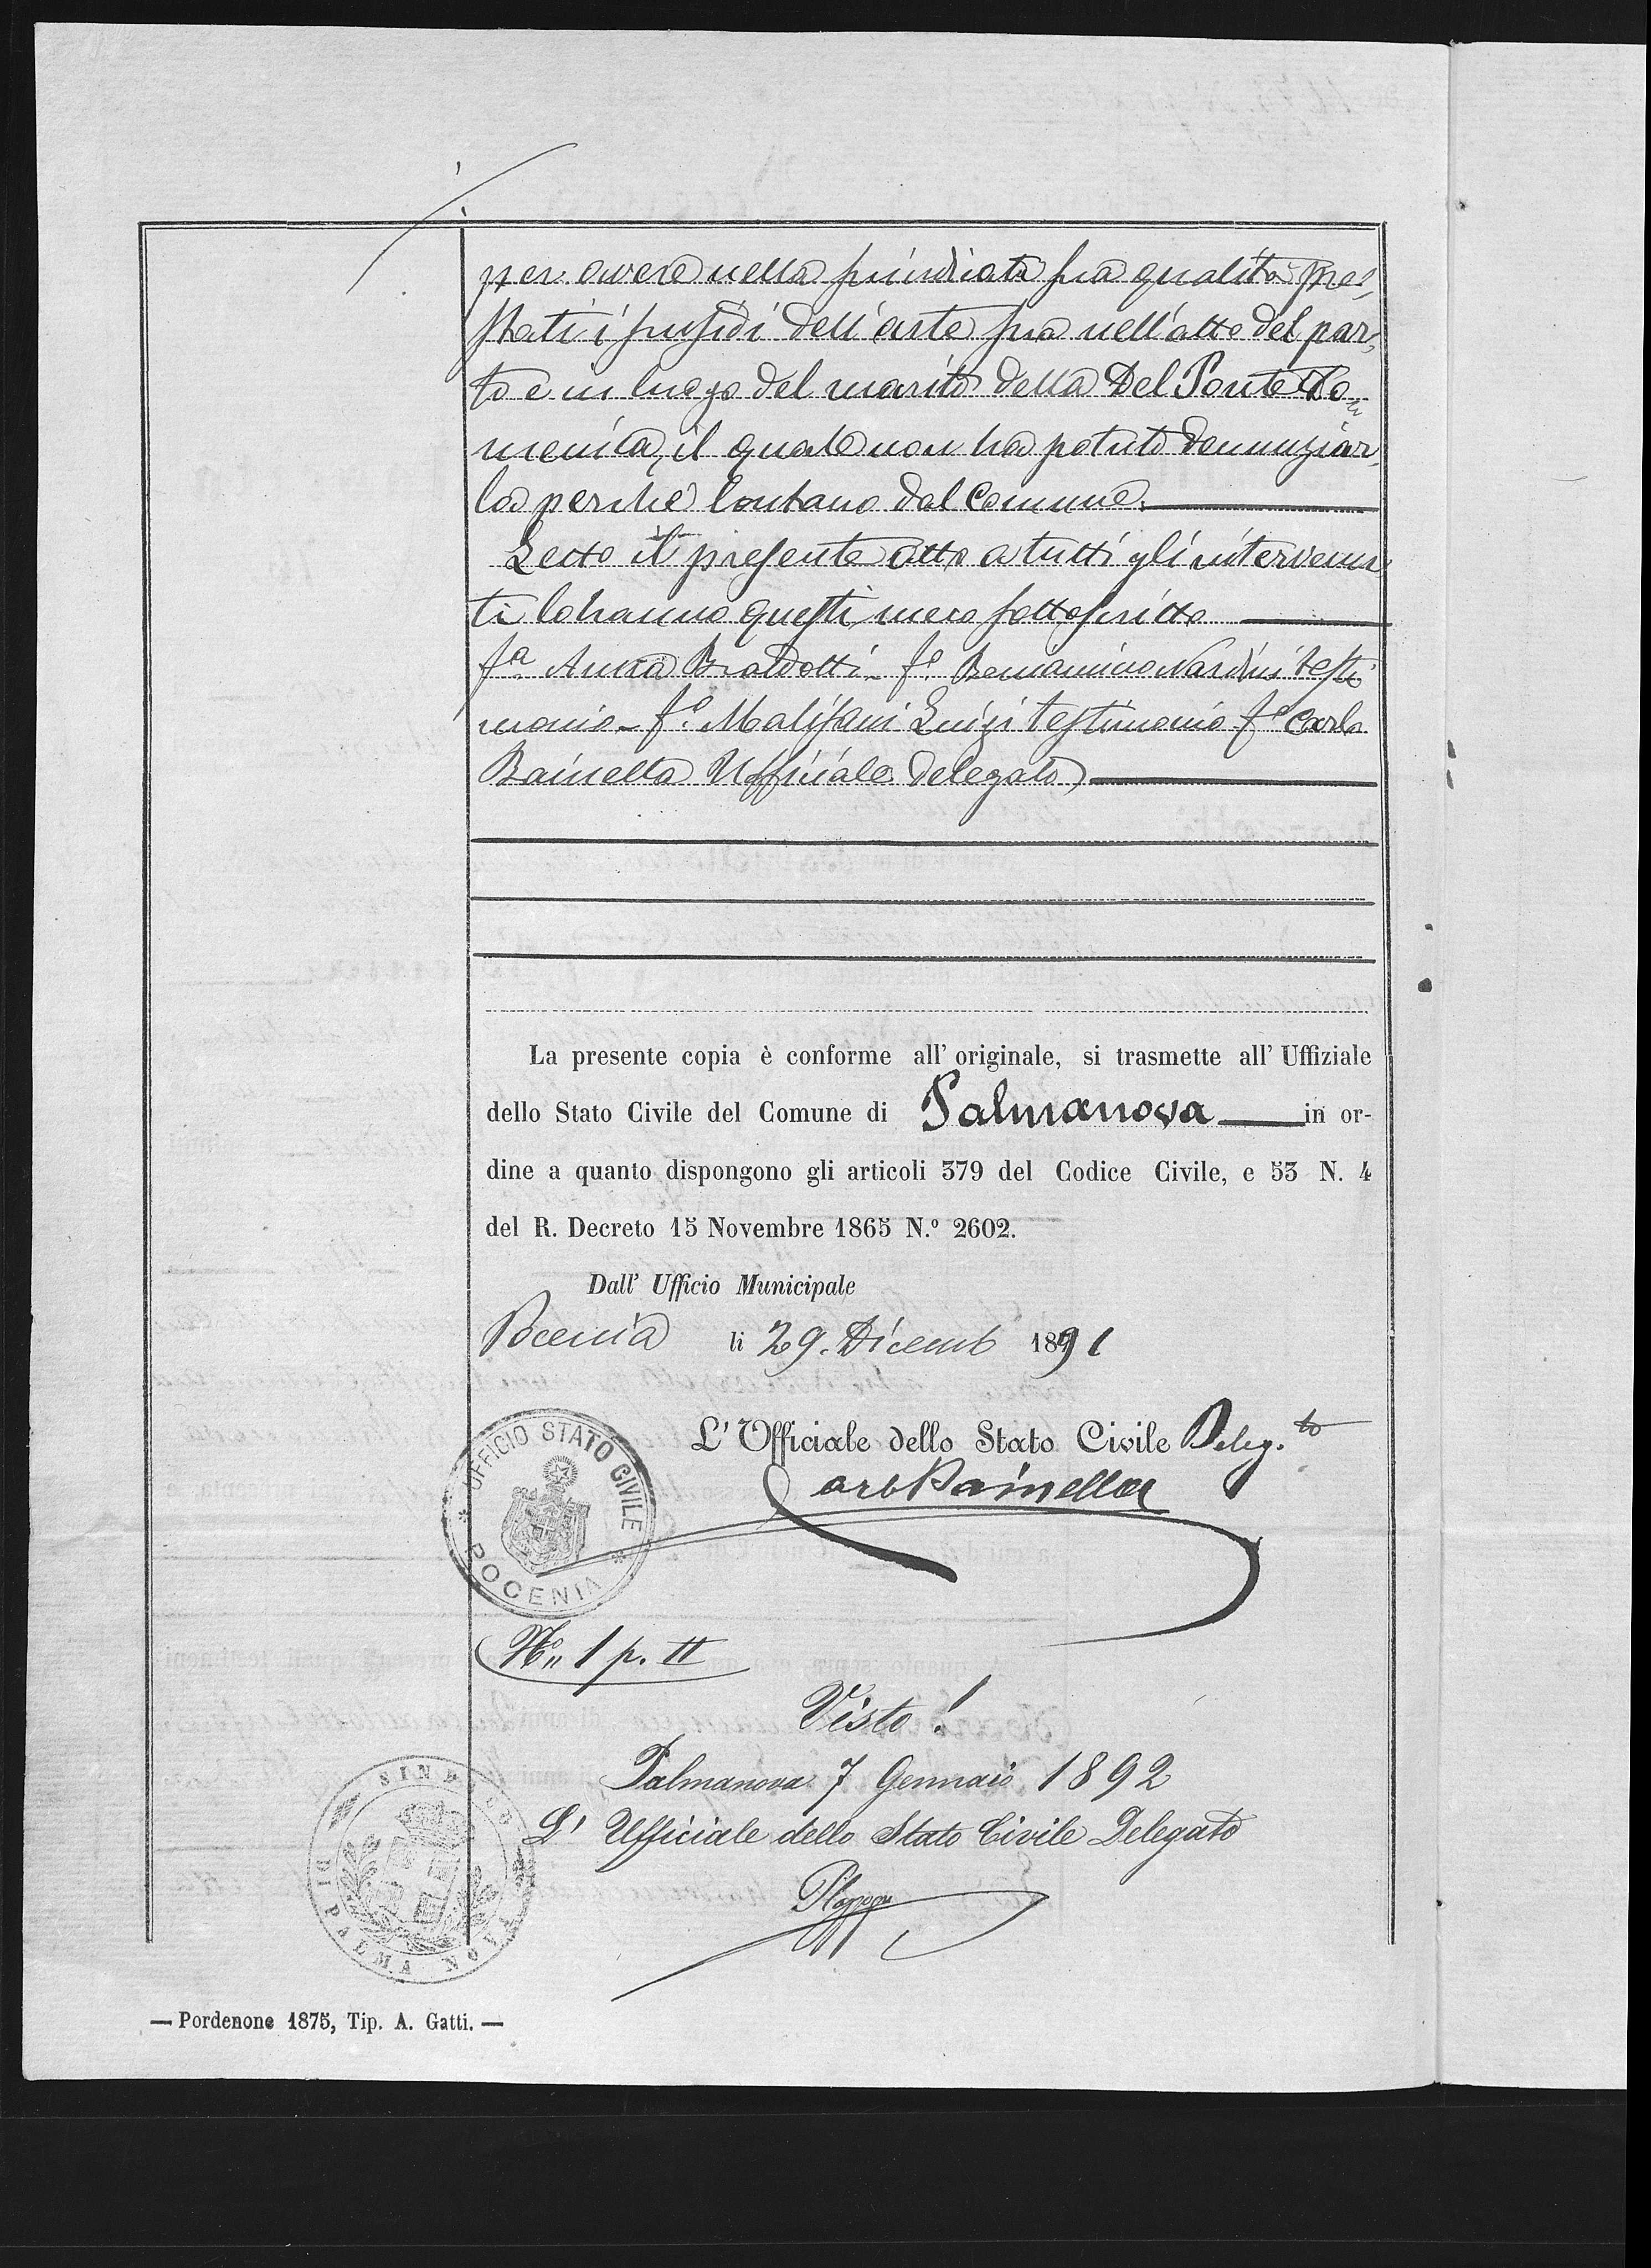 per avere nella suindicata sua qualità pre-
stati i sussidi dell'arte sua nell'atto del par-
to e in luogo del marito della Del Ponte Do-
menica, il quale non ha potuto denunziar-
la perchè lontano dal Comune.
Letto il presente atto a tutti gli intervenu-
ti lo hanno questi meco sottoscritto
fª Anna Braidotti - fº Beniamino Nardini testi
monio - fº Malisani Luigi testimonio fº Carlo
Bainella Ufficiale delegato
La presente copia è conforme all' originale, si trasmette all' Uffiziale
dello Stato Civile del Comune di Palmanova in or-
dine a quanto dispongono gli articoli 379 del Codice Civile, e 53 N. 4
del R. Decreto 15 Novembre 1865 N.º 2602.
Dall' Ufficio Municipale
Pocenia li 29. Dicemb 1891
L' Officiale dello Stato Civile Deleg.to
Carlo Bainella
UFFICIO STATO CIVILE
POCENIA
Nº 1 p. II
Visto!
Palmanova 7 Gennaio 1892
L' Ufficiale dello Stato Civile Delegato
SINDACO
DI PALMANOVA
— Pordenone 1875, Tip. A. Gatti. —